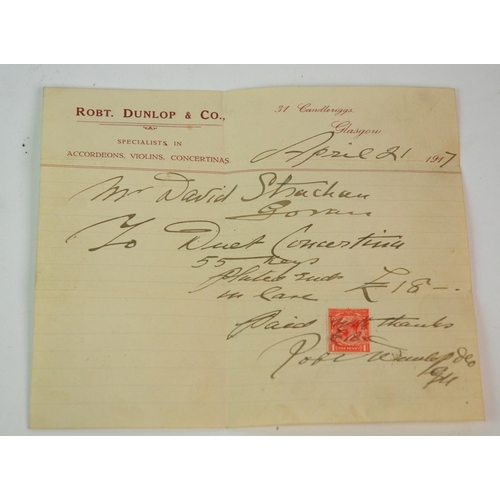 ROBT. DUNLOP & CO.,
SPECIALISTS IN
ACCORDEONS, VIOLINS, CONCERTINAS.
31 Candleriggs,
Glasgow
April 21 1917
Mr David Strachan
Govan
To Duet Concertina
55 Keys
plated ends
in Case £18 -
Paid with thanks
Robt Dunlop & Co